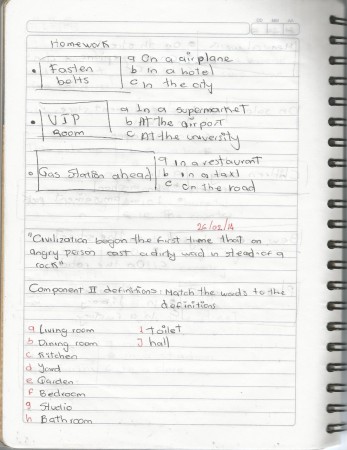 Homework
Fasten belts
a On a airplane
b. in a hotel
c In the city
VIP Room
a In a supermarket
b At the airport
c At the university
Gas Station ahead
a in a restaurant
b in a taxi
c On the road
26/02/14
"Civilization began the first time that an
angry person cast a dirty word in stead of a
rock"
Component II definitions: Match the words to the
definitions
a Living room
b. Dining room
c Kitchen
d Yard
e Garden
f Bedroom
g Studio
h Bathroom
i toilet
J hall